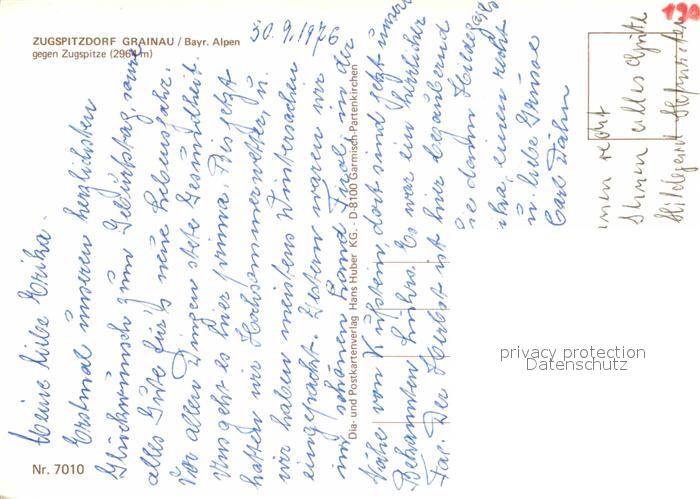 ZUGSPITZDORF GRAINAU / Bayr. Alpen
gegen Zugspitze (2964 m)
30.9.1976
Meine liebe Erika.
Erstmal unseren herzlichsten
Glückwunsch zum Geburtstag, sowie
alles Gute für's neue Lebensjahr.
Vor allen Dingen stete Gesundheit.
Uns geht es hier prima. Bis jetzt
hatten wir Hochsommerwetter, u.
wir haben meistens Wintersachen
eingepackt. Gestern waren wir
im schönen Land Tirol, in der
Nähe von Kufstein, dort sind jetzt unsere
Bekannten Luhrs. Es war ein herrlicher
Tag. Der Herbst ist hier bezaubernd
u. liebe Grüsse
Carl Dähn
einen recht
Ihnen alles Gute
Hildegard
Dia- und Postkartenverlag Hans Huber KG. - D-8100 Garmisch-Partenkirchen
Nr. 7010
190
privacy protection
Datenschutz